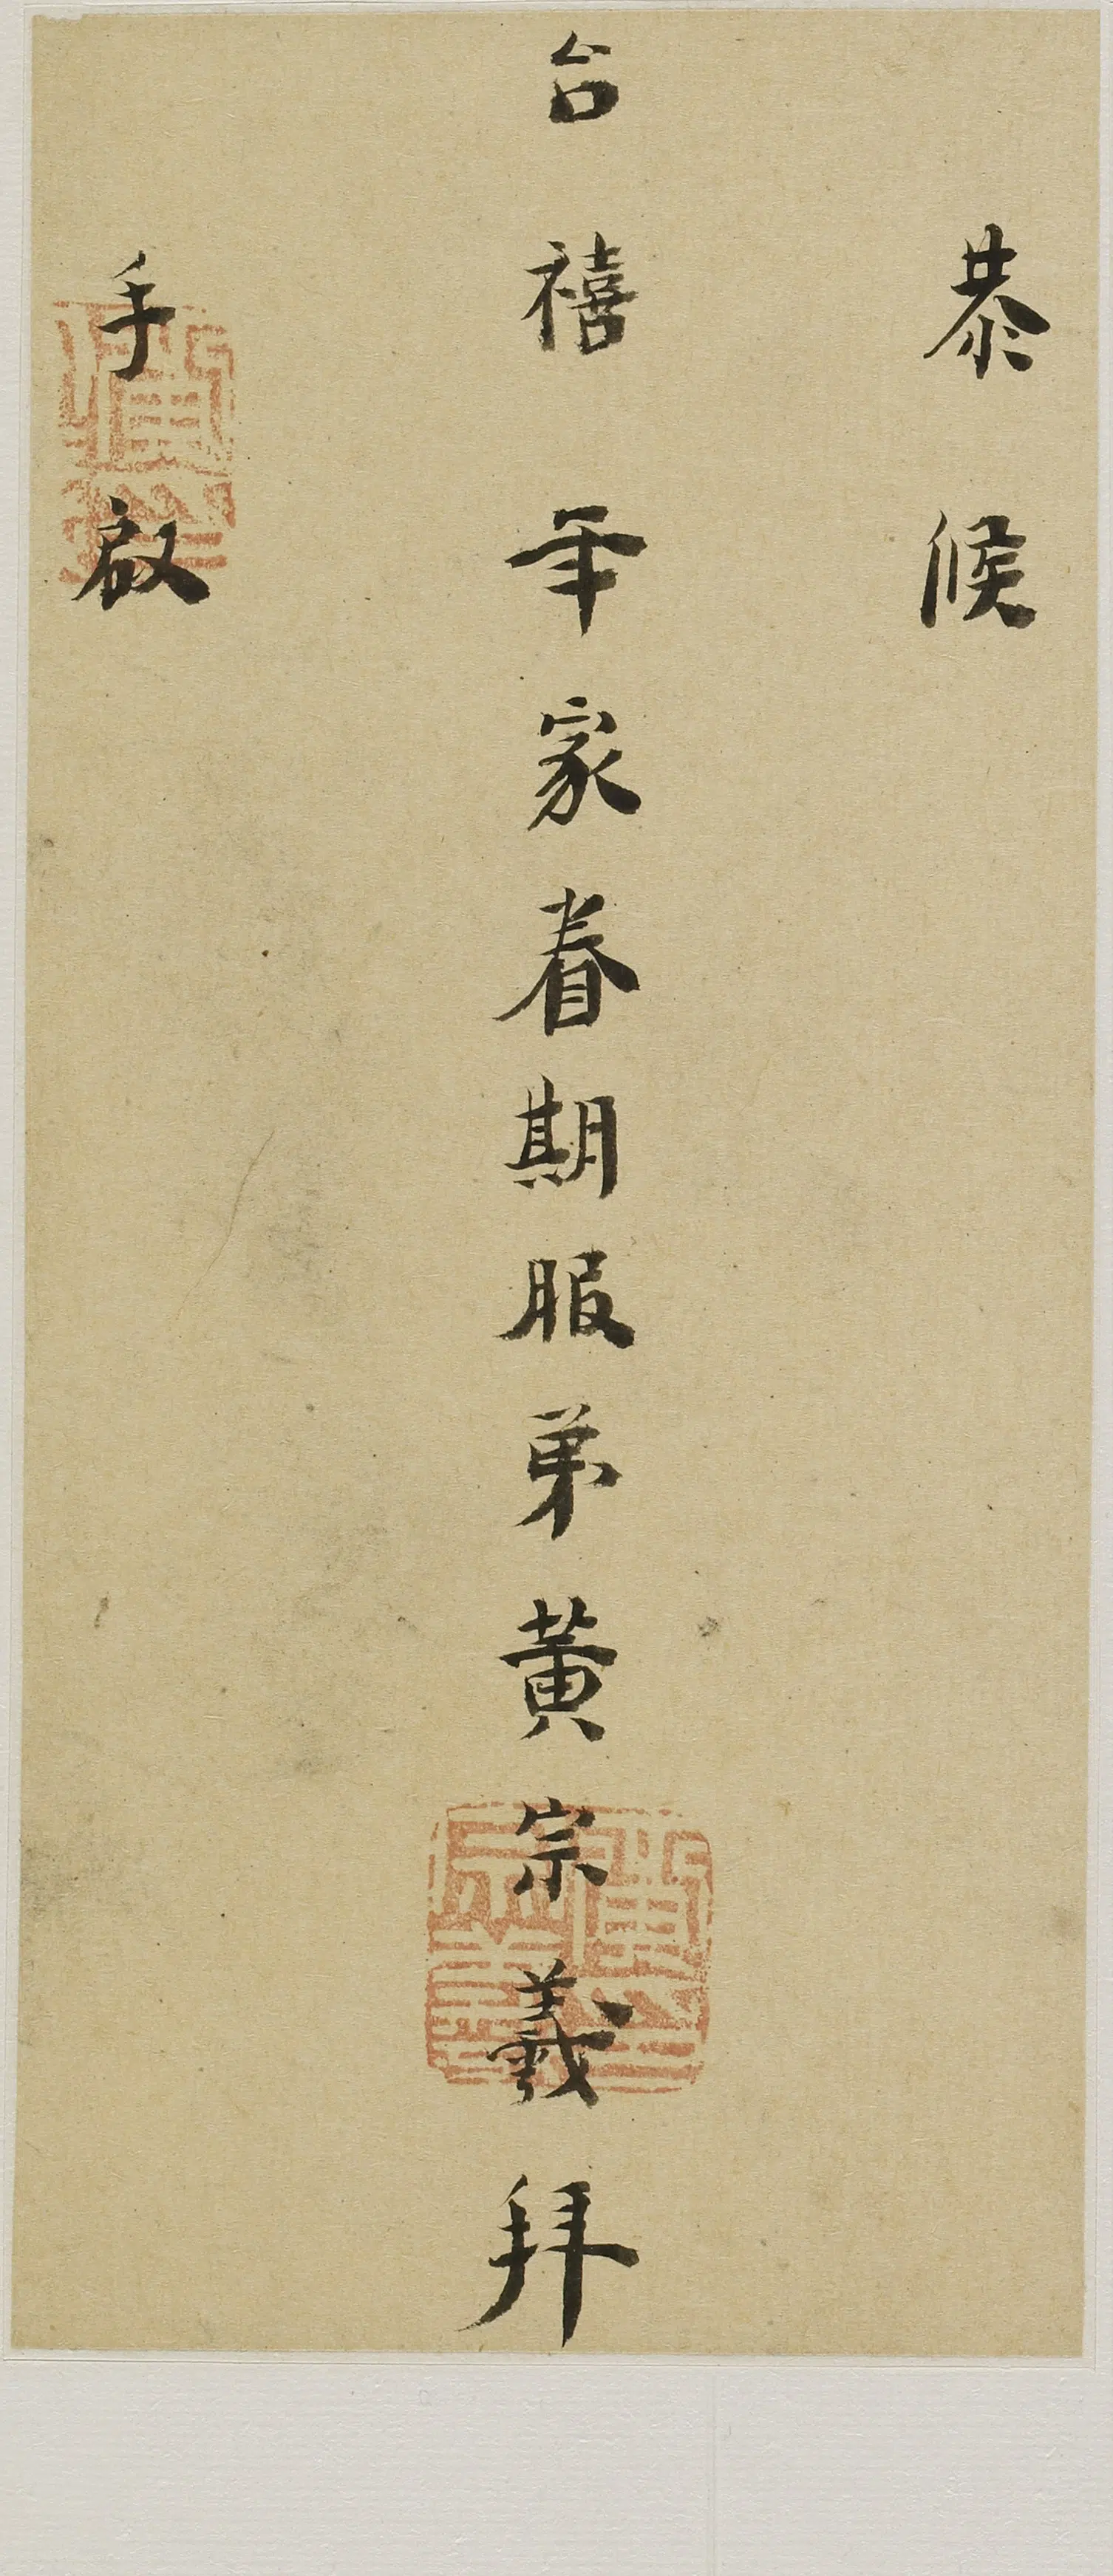 恭候
台禧年家眷期服弟黃宗羲拜
手啟